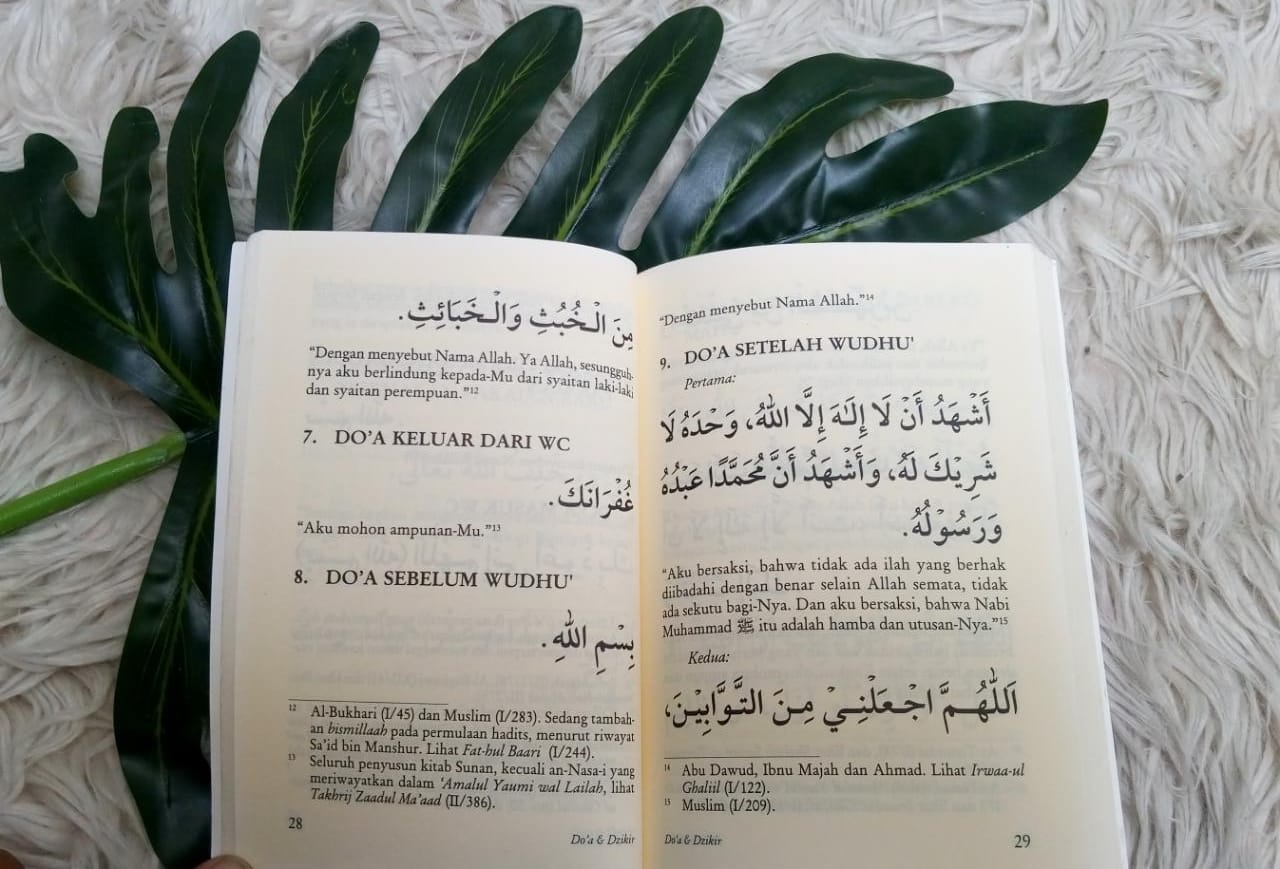 مِنَ الْخُبُثِ وَالْخَبَائِثِ.
“Dengan menyebut Nama Allah. Ya Allah, sesungguh-
nya aku berlindung kepada-Mu dari syaitan laki-laki
dan syaitan perempuan.”12
7. DO’A KELUAR DARI WC
غُفْرَانَكَ.
“Aku mohon ampunan-Mu.”13
8. DO’A SEBELUM WUDHU'
بِسْمِ اللهِ.
12 Al-Bukhari (I/45) dan Muslim (I/283). Sedang tambah-
an bismillaah pada permulaan hadits, menurut riwayat
Sa’id bin Manshur. Lihat Fat-hul Baari (I/244).
13 Seluruh penyusun kitab Sunan, kecuali an-Nasa-i yang
meriwayatkan dalam ‘Amalul Yaumi wal Lailah, lihat
Takhrij Zaadul Ma’aad (II/386).
28
Do’a & Dzikir
“Dengan menyebut Nama Allah.”14
9. DO’A SETELAH WUDHU'
Pertama:
أَشْهَدُ أَنْ لَا إِلَهَ إِلَّا اللهُ، وَحْدَهُ لَا
شَرِيْكَ لَهُ، وَأَشْهَدُ أَنَّ مُحَمَّدًا عَبْدُهُ
وَرَسُوْلُهُ.
“Aku bersaksi, bahwa tidak ada ilah yang berhak
diibadahi dengan benar selain Allah semata, tidak
ada sekutu bagi-Nya. Dan aku bersaksi, bahwa Nabi
Muhammad ﷺ itu adalah hamba dan utusan-Nya.”15
Kedua:
اَللّٰهُمَّ اجْعَلْنِيْ مِنَ التَّوَّابِيْنَ،
14 Abu Dawud, Ibnu Majah dan Ahmad. Lihat Irwaa-ul
Ghaliil (I/122).
15 Muslim (I/209).
Do’a & Dzikir
29